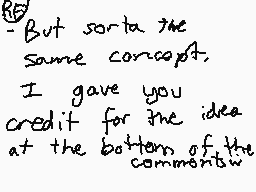 RE
- But sorta the
same concept.
I gave you
credit for the idea
at the bottom of the
comments